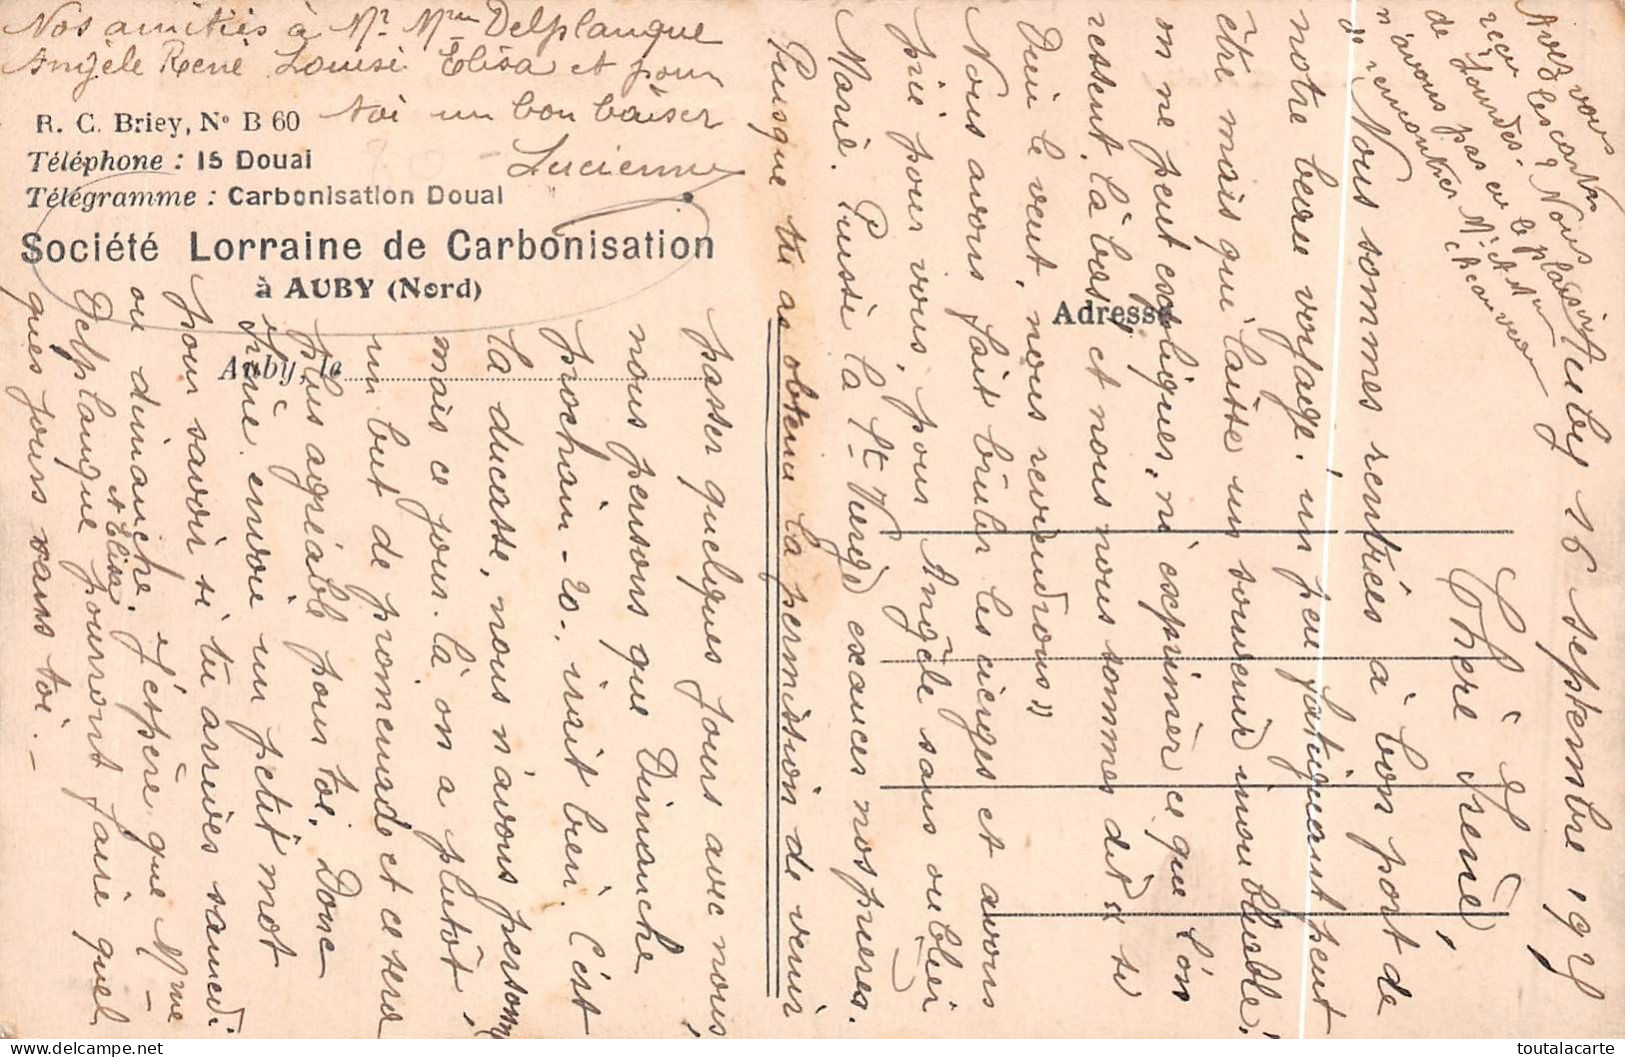 Auby 16 septembre 192
Chère Irène,
Nous sommes rentrées à bon port de
notre beau voyage, un peu fatiguant peut
être mais qui laisse un souvenir inoubliable,
on ne peut expliquer, ni exprimer ce que l'on
ressent là bas et nous nous sommes dit "si
Dieu le veut, nous reviendrons"
Nous avons fait brûler les cierges et avons
prié pour vous, pour Angèle sans oublier
Marie. Puisse la Ste Vierge exaucer nos prières.
Puisque tu as obtenu la permission de venir
passer quelques jours avec nous,
nous pensons que Dimanche
prochain - 20 -, irait bien. C'est
la ducasse, nous n'avons personne
mais ce jour-là on a plutôt
un but de promenade et ce sera
plus agréable pour toi. Donc
Irène envoie un petit mot
pour savoir si tu arrives samedi
ou dimanche. J'espère que Mme
Delplanque et Elisa pourront faire quel
ques jours sans toi. -
Nos amitiés à Mr Mme Delplanque
Angèle René Louise Elisa et pour
toi un bon baiser
Lucienne
Avez vous
reçu les cartes
de Lourdes. Nous
n'avons pas eu le plaisir
de rencontrer Mr et Mme
R. C. Briey, No B 60
Téléphone : 15 Douai
Télégramme : Carbonisation Douai
Société Lorraine de Carbonisation
à AUBY (Nord)
Auby, le
Adresse
toutalacarte